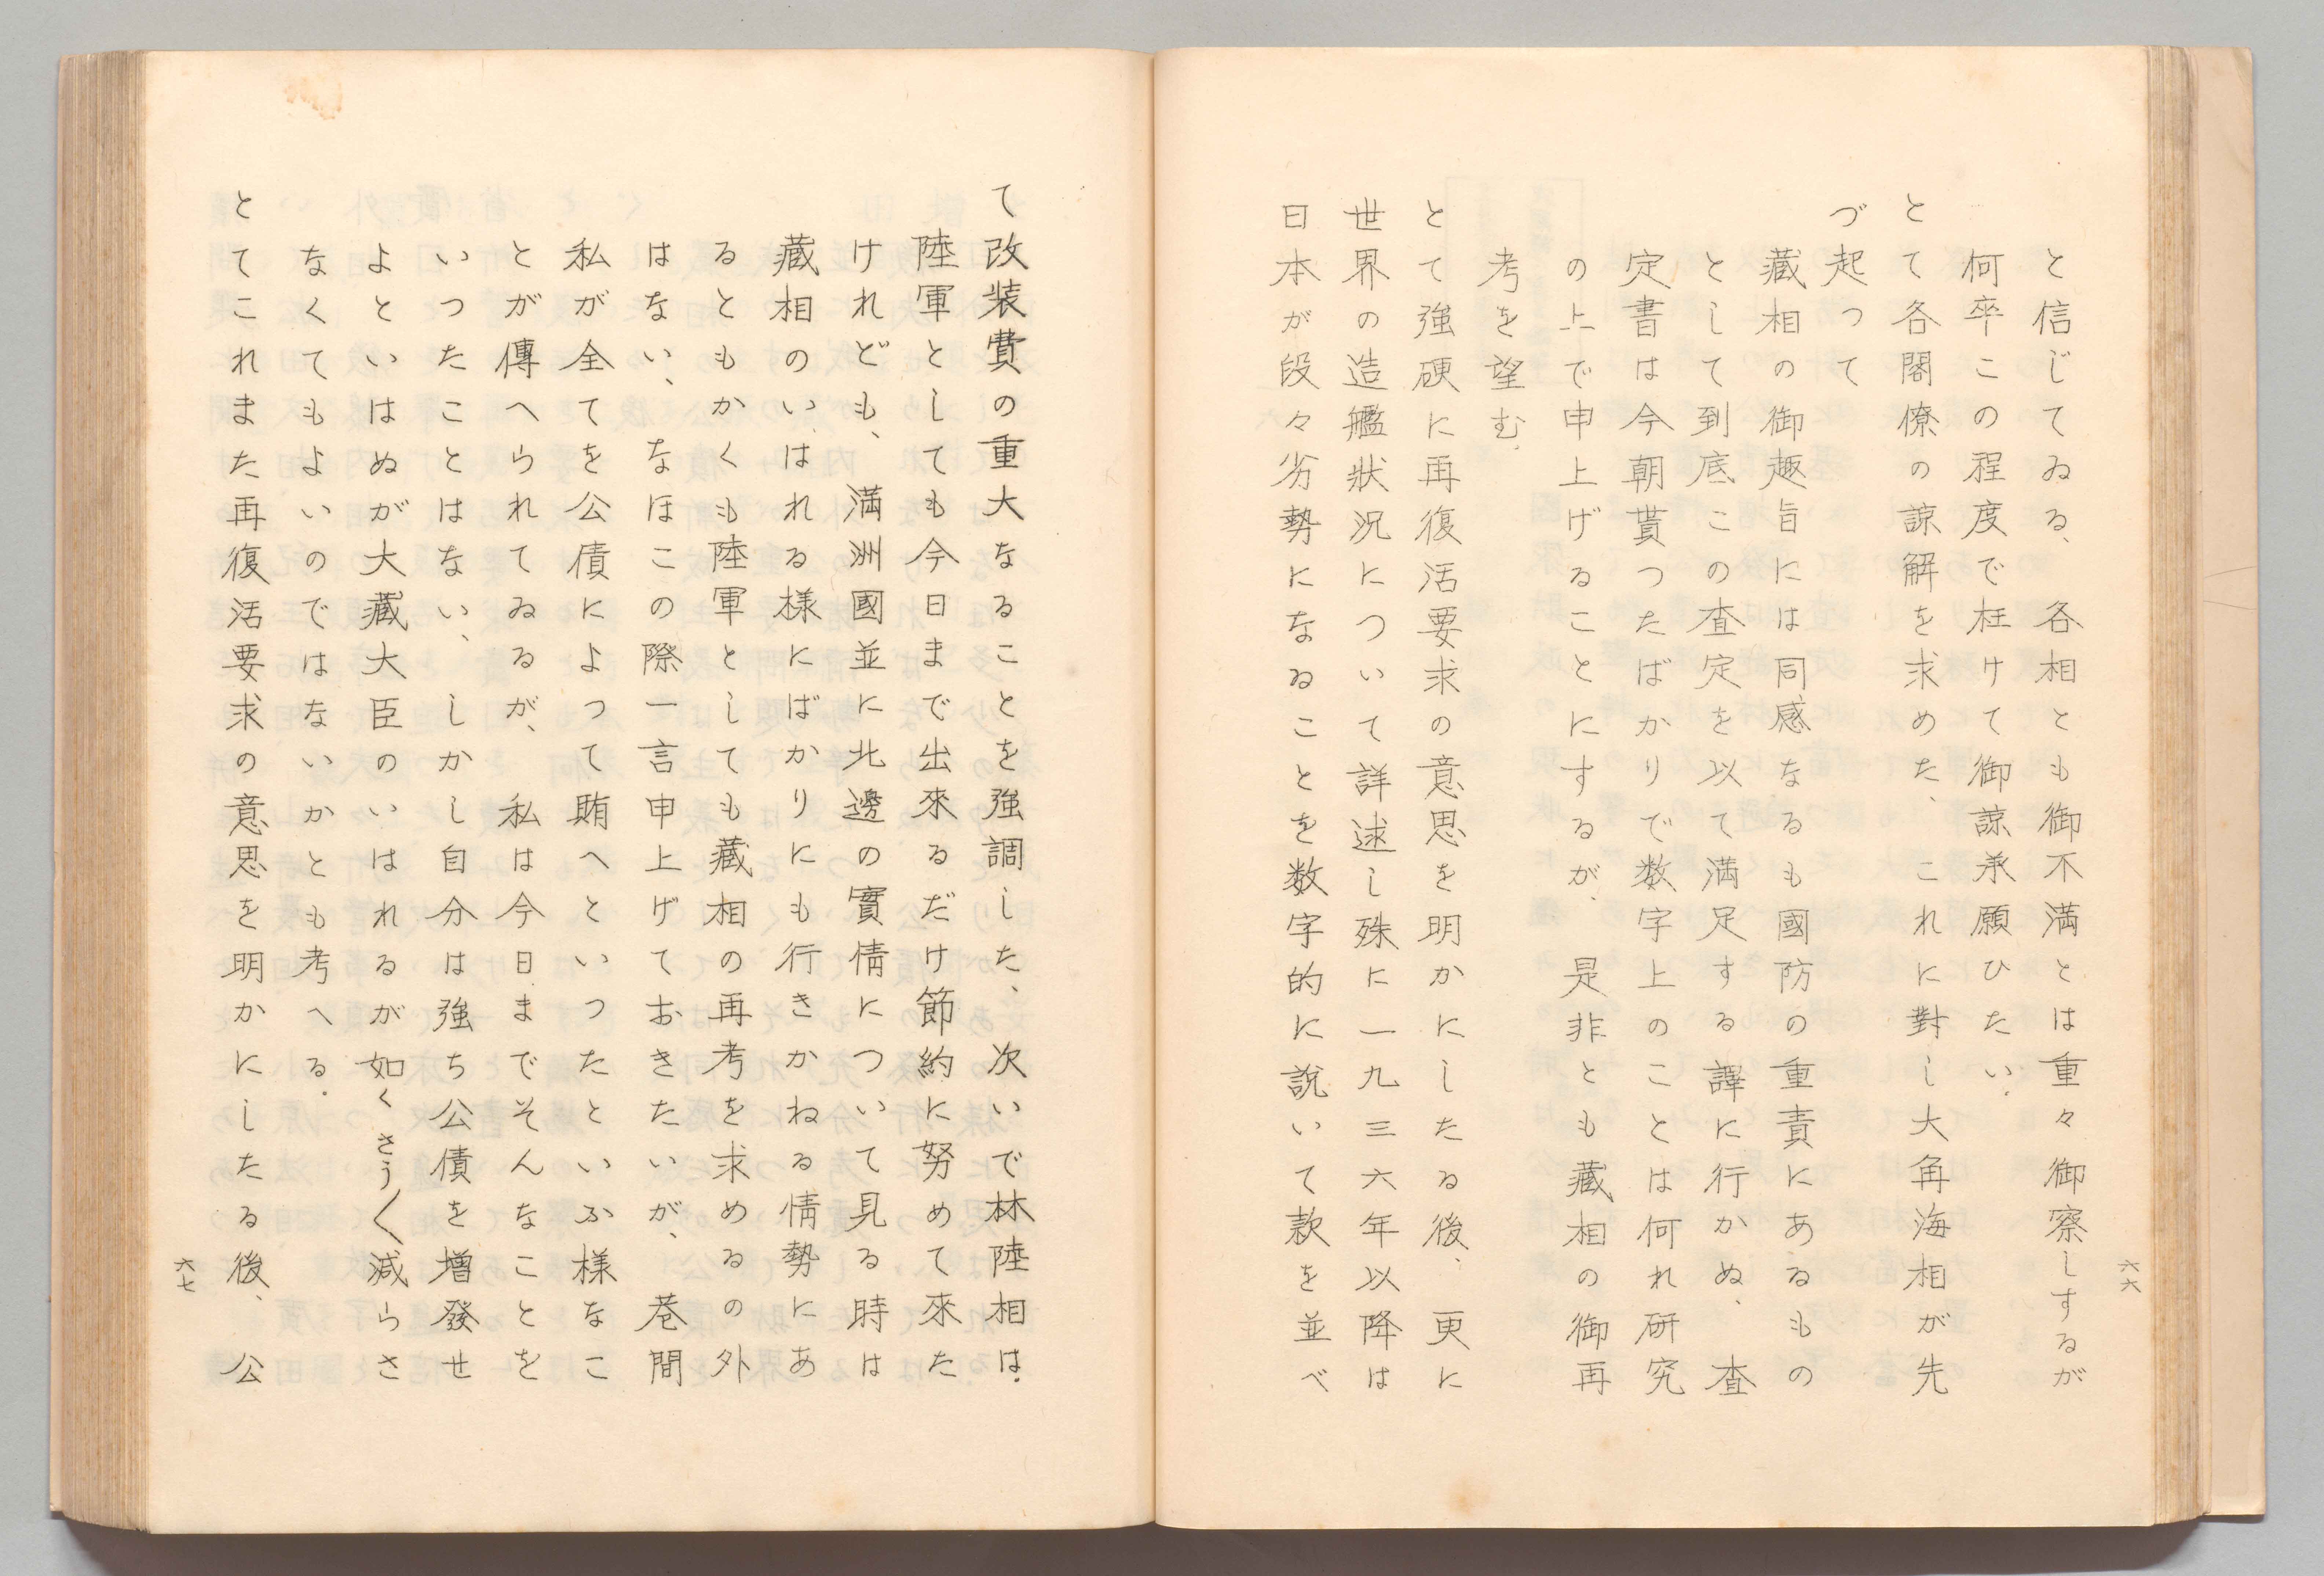 と信じてゐる、各相とも御不満とは重々御察しするが
何卒この程度で枉けて御諒承願ひたい.
とて各閣僚の諒解を求めた、これに對し大角海相が先
づ起つて
藏相の御趣旨には同感なるも國防の重責にあるもの
として到底この査定を以て満足する譯に行かぬ、査
定書は今朝貰つたばかりで数字上のことは何れ研究
の上で申上げることにするが、是非とも藏相の御再
考を望む.
とて強硬に再復活要求の意思を明かにしたる後、更に
世界の造艦狀況について詳述し殊に一九三六年以降は
日本が段々劣勢になることを数字的に說いて款を並べ
六六
て改装費の重大なることを強調した、次いで林陸相は.
陸軍としても今日まで出來るだけ節約に努めて來た
けれども、満洲國並に北邊の實情について見る時は
藏相のいはれる様にばかりにも行きかねる情勢にあ
るともかくも陸軍としても藏相の再考を求めるの外
はない、なほこの際一言申上げておきたいが、巷間
私が全てを公債によつて賄へといつたといふ様なこ
とが傳へられてゐるが、私は今日までそんなことを
いつたことはない、しかし自分は強ち公債を増發せ
よといはぬが大藏大臣のいはれるが如くさう〱減らさ
なくてもよいのではないかとも考へる.
とてこれまた再復活要求の意思を明かにしたる後、公
六七